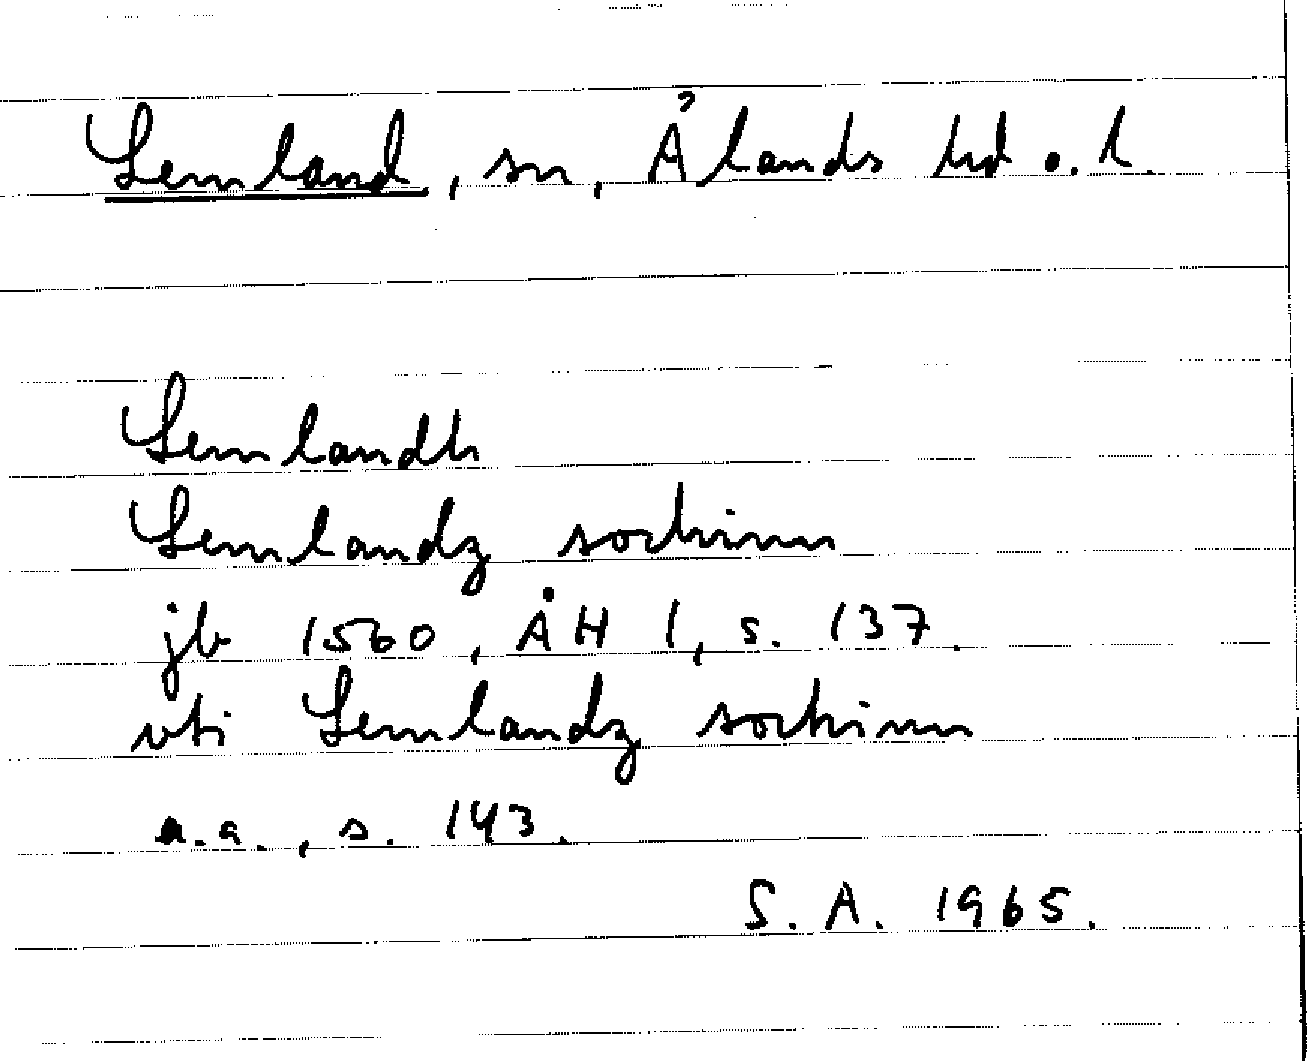 Lemland, sn, Ålands hd o. l.
Lemlandh
Lemlandz sochinn
jb 1560, ÅH 1, s. 137.
vti Lemlandz sochinn
a.a., s. 143.
S. A. 1965.